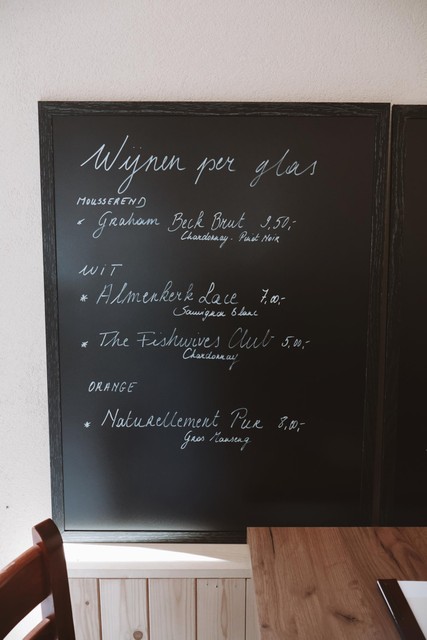 Wijnen per glas
MOUSSEREND
* Graham Beck Brut 9,50,-
Chardonnay - Pinot Noir
WIT
* Almenkerk Lace 7,00,-
Sauvignon Blanc
* The Fishwives Club 5,00,-
Chardonnay
ORANGE
* Naturellement Pur 8,00,-
Gros Manseng